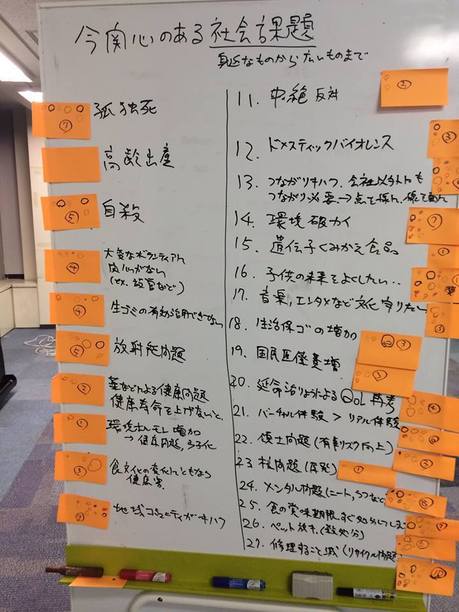 今関心のある社会課題
身近なものから広いものまで
孤独死
高齢出産
自殺
大変なボランティアに
関心がない
生ゴミの有効活用できてない
放射能問題
などによる健康問題
健康寿命を上げないと
環境ホルモン増加
→ 健康問題、
食文化の変化にともなう
健康害
地域コミュニティが
11. 中絶反対
12. ドメスティックバイオレンス
13. つながりキハク、会社以外にも
つながり必要→
14. 環境破カイ
15. 遺伝子くみかえ食品
16. 子供の未来をよくしたい..
17. 音楽、エンタメなど文化守りたい
18. 生活保ゴの増加
19. 国民医療費増
20. 延命治りょうによるQOL再考
21. バーチャル体験 > リアル体験
22. 領土問題 (有事リスク向上)
23 核問題 (原発)
24. メンタル問題 (ニート、うつなど)
25. 食の賞味期限、すぐ処分してしまう
26. ペット (殺処分)
27. 修理すること減 (リサイクル問題)